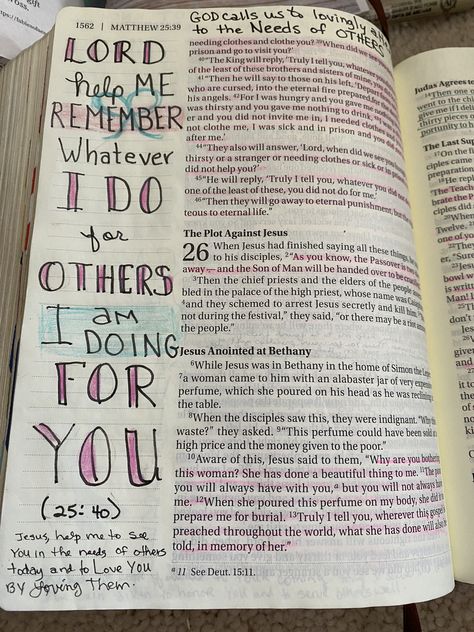 1562 | MATTHEW 25:39
GOD calls us to lovingly
to the Needs of OTHERS
LORD
help ME
REMEMBER
Whatever
I DO
for
OTHERS
I am
DOING
FOR
YOU
(25:40)
Jesus, help me to see
You in the needs of others
today and to Love You
By Loving Them.
needing clothes and clothe you? 39When did we see
prison and go to visit you?'
40"The King will reply, 'Truly I tell you, whatever you
of the least of these brothers and sisters of mine, you
41"Then he will say to those on his left, 'Depart
who are cursed, into the eternal fire prepared for the
his angels. 42For I was hungry and you gave me
was thirsty and you gave me nothing to drink,
and you did not invite me in, I needed clothes and
not clothe me, I was sick and in prison and you
after me.'
44"They also will answer, 'Lord, when did we see you
thirsty or a stranger or needing clothes or sick or in
did not help you?'
45"He will reply, 'Truly I tell you, whatever you did not
one of the least of these, you did not do for me.'
46"Then they will go away to eternal punishment, but the
teous to eternal life."
The Plot Against Jesus
26 When Jesus had finished saying all these things, he
to his disciples, 2"As you know, the Passover is two
away — and the Son of Man will be handed over to be
3Then the chief priests and the elders of the people
bled in the palace of the high priest, whose name was
4and they schemed to arrest Jesus secretly and kill him.
not during the festival," they said, "or there may be a riot among
the people."
Jesus Anointed at Bethany
6While Jesus was in Bethany in the home of Simon the
7a woman came to him with an alabaster jar of very expensive
perfume, which she poured on his head as he was reclining at
the table.
8When the disciples saw this, they were indignant. "Why this
waste?" they asked. 9"This perfume could have been sold at a
high price and the money given to the poor."
10Aware of this, Jesus said to them, "Why are you bothering
this woman? She has done a beautiful thing to me. 11The poor
you will always have with you,a but you will not always have
me. 12When she poured this perfume on my body, she did it to
prepare me for burial. 13Truly I tell you, wherever this gospel is
preached throughout the world, what she has done will also be
told, in memory of her."
a 11 See Deut. 15:11.
Judas Agrees to
14Then one of
went to the
give me if I deli
thirty pieces o
portunity to h
The Last Sup